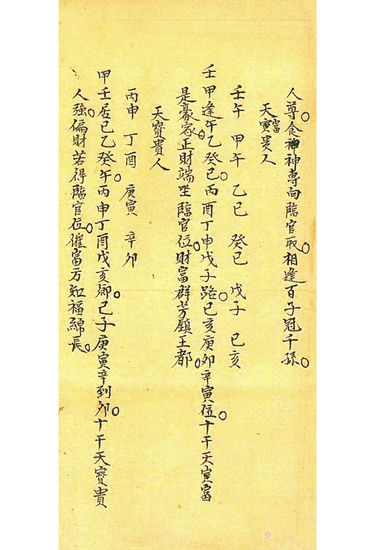 人尊食神神專向臨官取相逢百子冠千孫
天富貴人
壬午 甲午 乙巳 癸巳 戊子 己亥
壬甲逢午乙癸巳丙酉丁申戊子路己亥庚卯辛寅位十干天寅富
是豪家正財端坐臨官位財富群芳鎮王都
天寶貴人
丙申 丁酉 庚寅 辛卯
甲壬居巳乙癸午丙申丁酉戊亥鄉己子庚寅辛到卯十干天寶貴
人強偏財若得臨官位催富方知福綿長